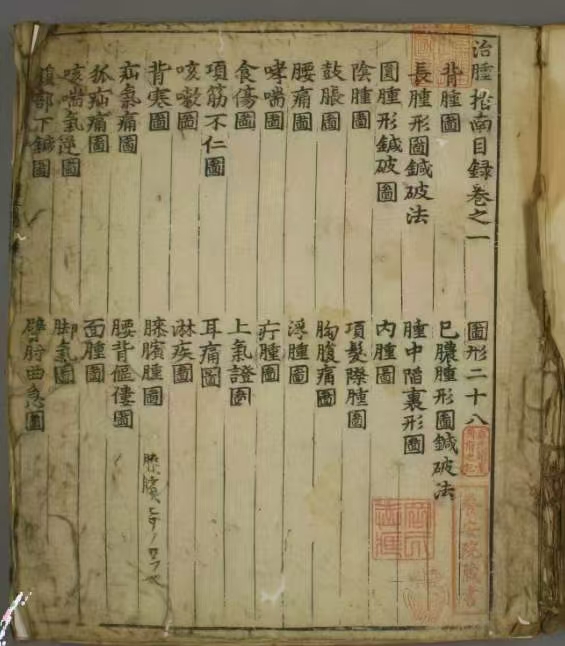 治腫指南目録卷之一 圖形二十八
背腫圖 已膿腫形圖鍼破法
長腫形圖鍼破法 腫中階裏形圖
圓腫形鍼破圖 内腫圖
陰腫圖 項髮際腫圖
鼓脹圖 胸腹痛圖
腰痛圖 浮腫圖
哮喘圖 疔腫圖
食傷圖 上氣證圖
項筋不仁圖 耳痛圖
咳嗽圖 淋疾圖
背寒圖 膝臏腫圖
疝氣痛圖 腰背傴僂圖
狐疝痛圖 面腫圖
咳喘氣逆圖 脚氣圖
腹部下鍼圖 臂肘曲急圖
養安院藏書
膝臏